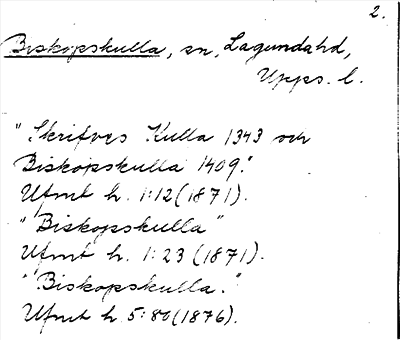 2.
Biskopskulla, sn, Lagundahd,
Upps. l.
"Skrifves Kulla 1343 och
Biskopskulla 1409."
Ufmt h. 1:12 (1871).
"Biskopskulla"
Ufmt h. 1:23 (1871).
"Biskopskulla."
Ufmt h 5:80 (1876).